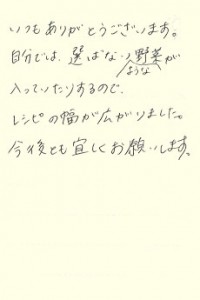 いつもありがとうございます。
自分では、選ばないような野菜が
入っていたりするので、
レシピの幅が広がりました。
今後とも宜しくお願いします。